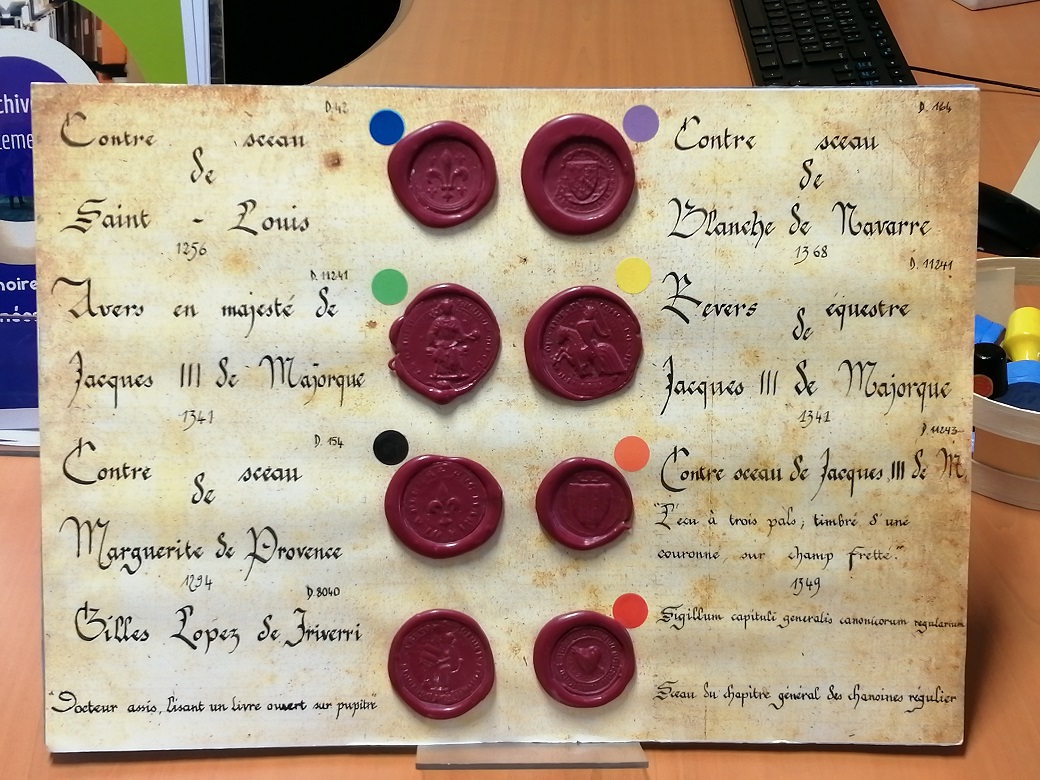 D. 42
Contre sceau
de
Saint - Louis
1256
D. 164
Contre sceau
de
Blanche de Navarre
1368
D. 11241
Avers en majesté de
Jacques III de Majorque
1341
D. 11241
Revers équestre
de
Jacques III de Majorque
1341
D. 154
Contre sceau
de
Marguerite de Provence
1294
D. 11243
Contre sceau de Jacques III de M
"L'ecu à trois pals, timbré d'une
couronne sur champ fretté."
1349
D. 8040
Gilles Lopez de Iriverri
"Docteur assis, lisant un livre ouvert sur pupitre
Sigillum capituli generalis canonicorum regularium
Sceau du chapitre général des chanoines régulier